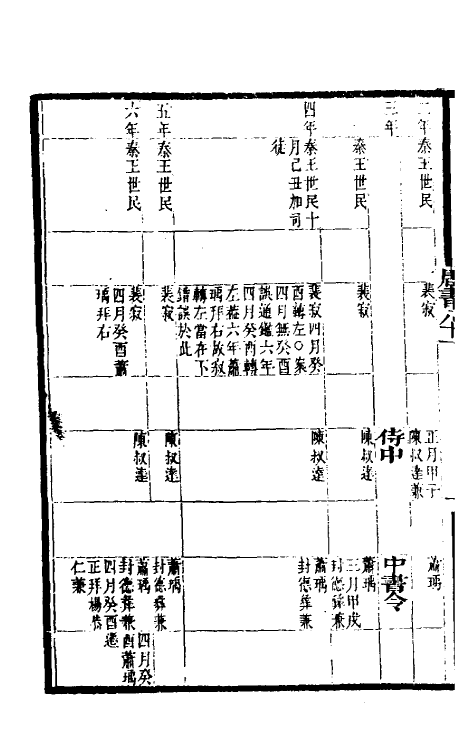 二年
秦王世民
裴寂
正月甲子
陳叔達兼
蕭瑀
三年
侍中
中書令
秦王世民
裴寂
陳叔達
蕭瑀
三月甲戌
封德彝兼
四年
秦王世民十
月己丑加司
徒
裴寂四月癸
酉轉左○案
四月無癸酉
誤通鑑六年
四月癸酉轉
左蓋六年蕭
瑀拜右故寂
轉左當在下
錯誤於此
陳叔達
蕭瑀
封德彝兼
五年
秦王世民
裴寂
陳叔達
蕭瑀
封德彝兼
六年
秦王世民
裴寂
四月癸酉蕭
瑀拜右
陳叔達
蕭瑀 四月癸
封德彝兼酉蕭瑀
四月癸酉遷
正拜楊恭
仁兼